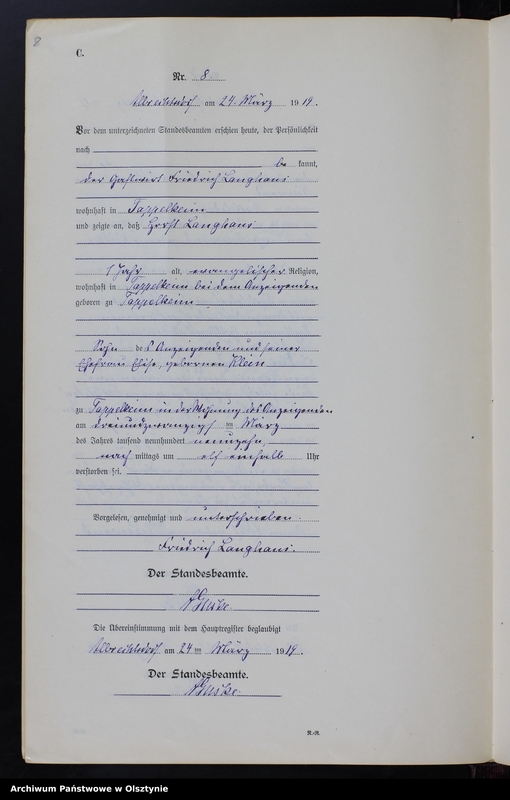 8
C.
Nr. 8
Albrechtsdorf am 24. März 1919.
Vor dem unterzeichneten Standesbeamten erschien heute, der Persönlichkeit
nach
be kannt,
der Gastwirt Friedrich Langhans
wohnhaft in Tappelkeim
und zeigte an, daß Horst Langhans
1 Jahr alt, evangelischer Religion,
wohnhaft in Tappelkeim bei dem Anzeigenden
geboren zu Tappelkeim
Sohn des Anzeigenden und seiner
Ehefrau geborenen Klein
zu Tappelkeim in der Wohnung des Anzeigenden
am dreiundzwanzigsten März
des Jahres tausend neunhundert neunzehn
nach mittags um elf einhalb Uhr
verstorben sei.
Vorgelesen, genehmigt und unterschrieben.
Friedrich Langhans.
Der Standesbeamte.
Die Übereinstimmung mit dem Hauptregister beglaubigt
Albrechtsdorf am 24 ten März 1919.
Der Standesbeamte.
Archiwum Państwowe w Olsztynie